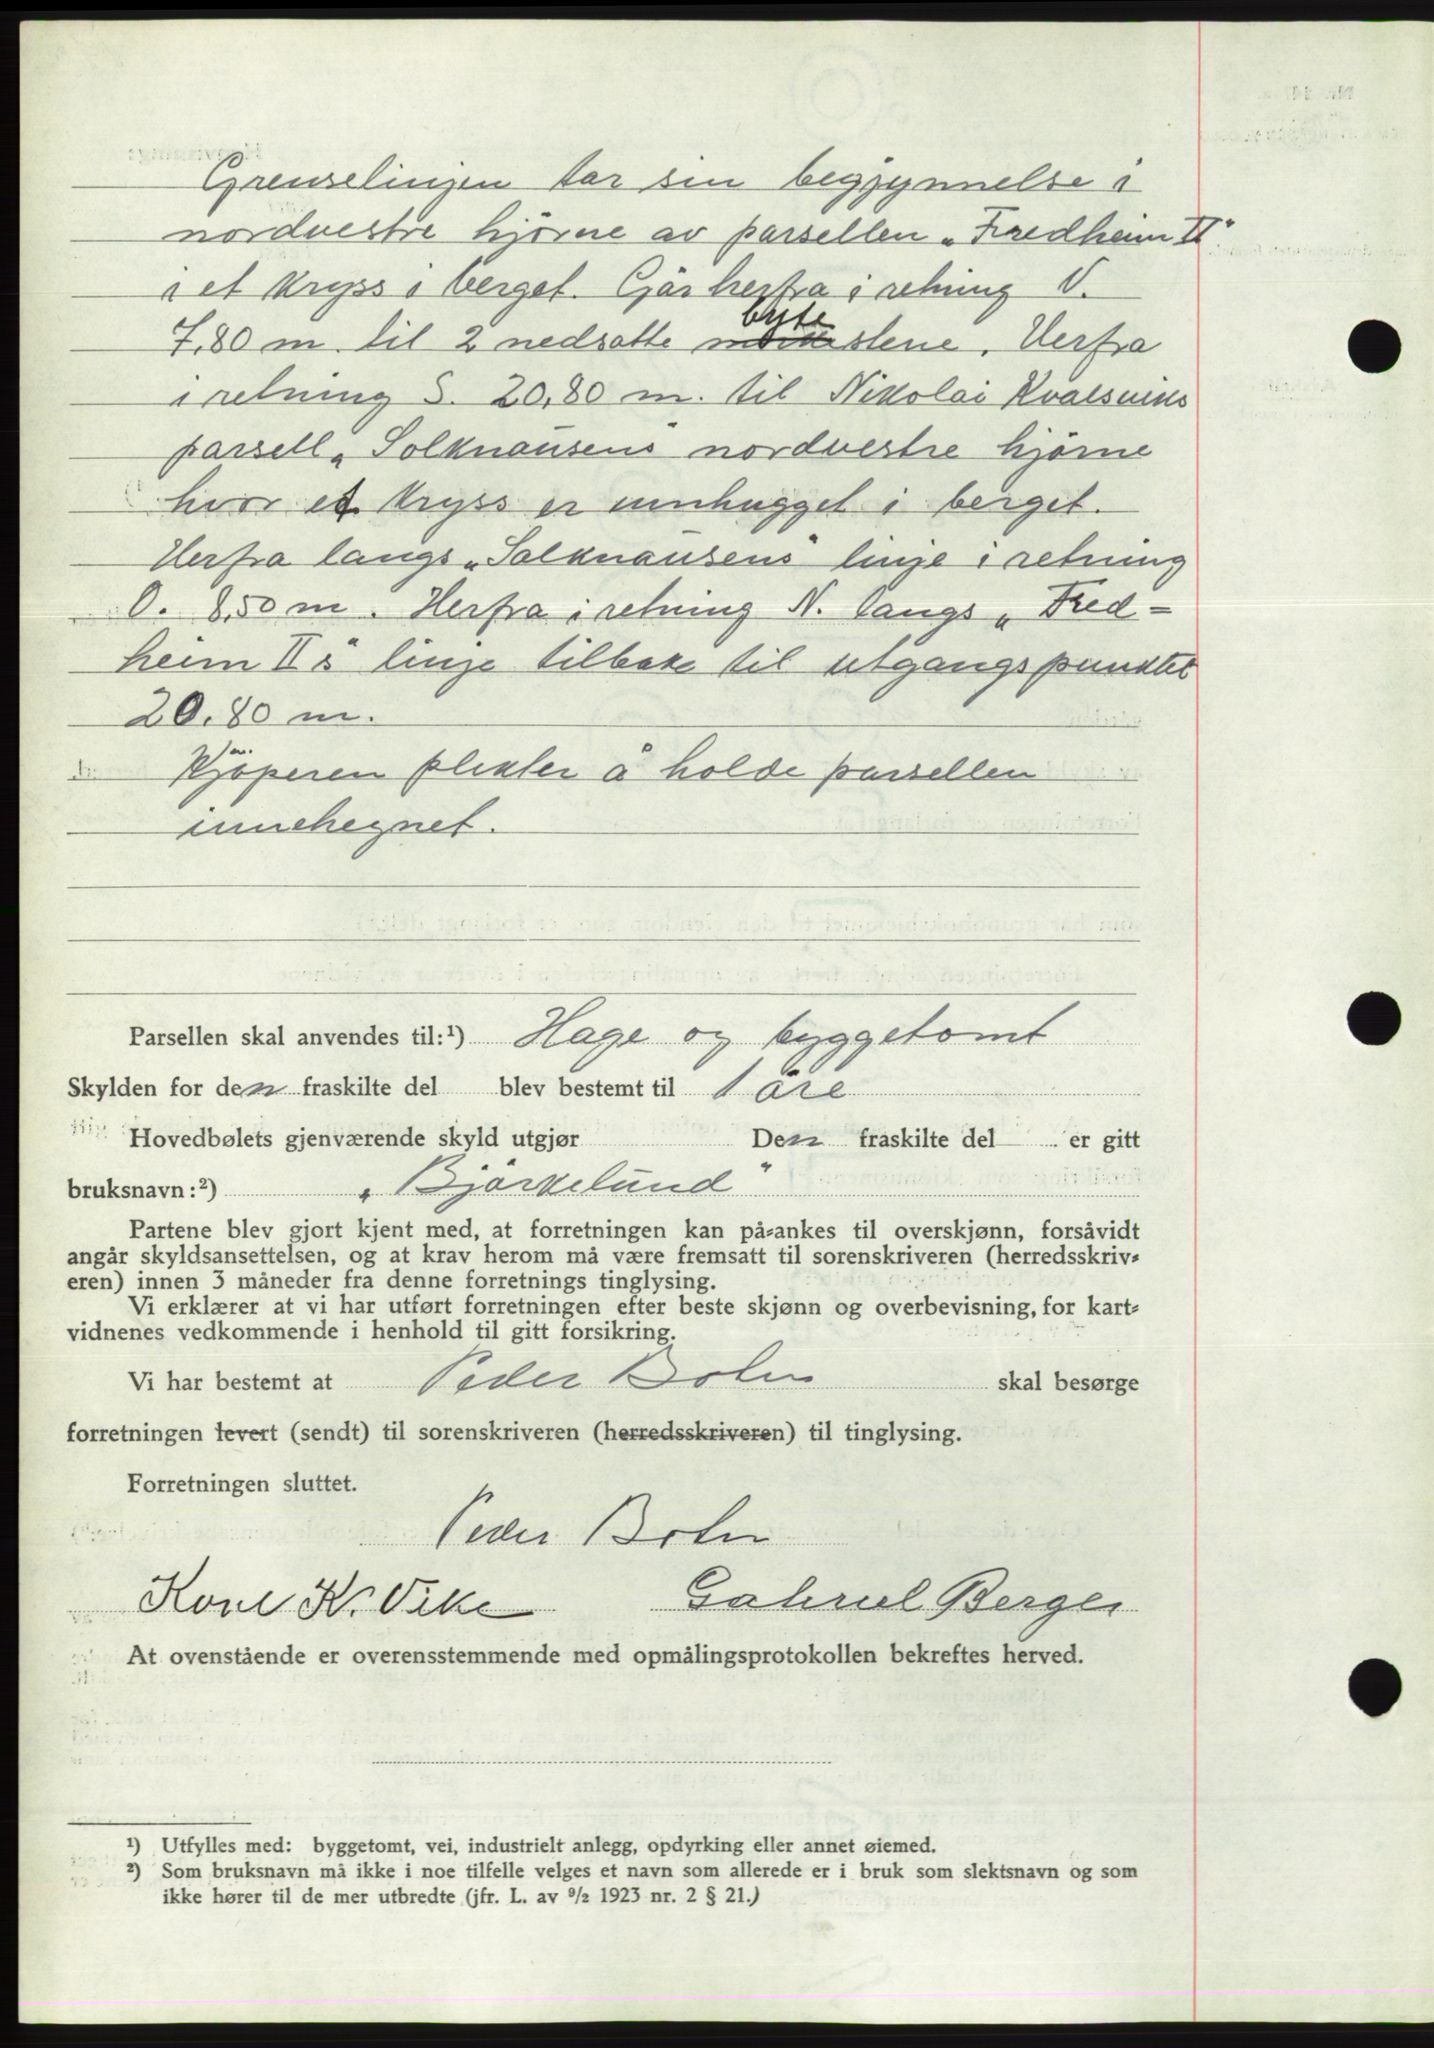 Grenselinjen tar sin begjynnelse i
nordvestre hjørne av parsellen „Fredheim II"
i et kryss i berget. Går herfra i retning V.
byte
7,80 m. til 2 nedsatte stene. Herfra
i retning S. 20,80 m. til Nikolai Kvalsviks
parsell „Solknausens" nordvestre hjørne
hvor et kryss er innhugget i berget.
Herfra langs „Solknausens" linje i retning
O. 8,50 m. Herfra i retning N. langs „Fred=
heim II's" linje tilbake til utgangspunktet
20,80 m.
Kjøperen plikter å holde parsellen
innehegnet.
Parsellen skal anvendes til:¹) Hage og byggetomt
Skylden for den fraskilte del blev bestemt til 1 øre
Hovedbølets gjenværende skyld utgjør Den fraskilte del er gitt
bruksnavn:²) „Bjørkelund"
Partene blev gjort kjent med, at forretningen kan på-ankes til overskjønn, forsåvidt
angår skyldsansettelsen, og at krav herom må være fremsatt til sorenskriveren (herredsskriv-
eren) innen 3 måneder fra denne forretnings tinglysing.
Vi erklærer at vi har utført forretningen efter beste skjønn og overbevisning, for kart-
vidnenes vedkommende i henhold til gitt forsikring.
Vi har bestemt at Peder Bolm skal besørge
forretningen levert (sendt) til sorenskriveren (herredsskriveren) til tinglysing.
Forretningen sluttet.
Peder Bolm
K. Vike Gabriel Berge
At ovenstående er overensstemmende med opmålingsprotokollen bekreftes herved.
¹) Utfylles med: byggetomt, vei, industrielt anlegg, opdyrking eller annet øiemed.
²) Som bruksnavn må ikke i noe tilfelle velges et navn som allerede er i bruk som slektsnavn og som
ikke hører til de mer utbredte (jfr. L. av 9/2 1923 nr. 2 § 21.)